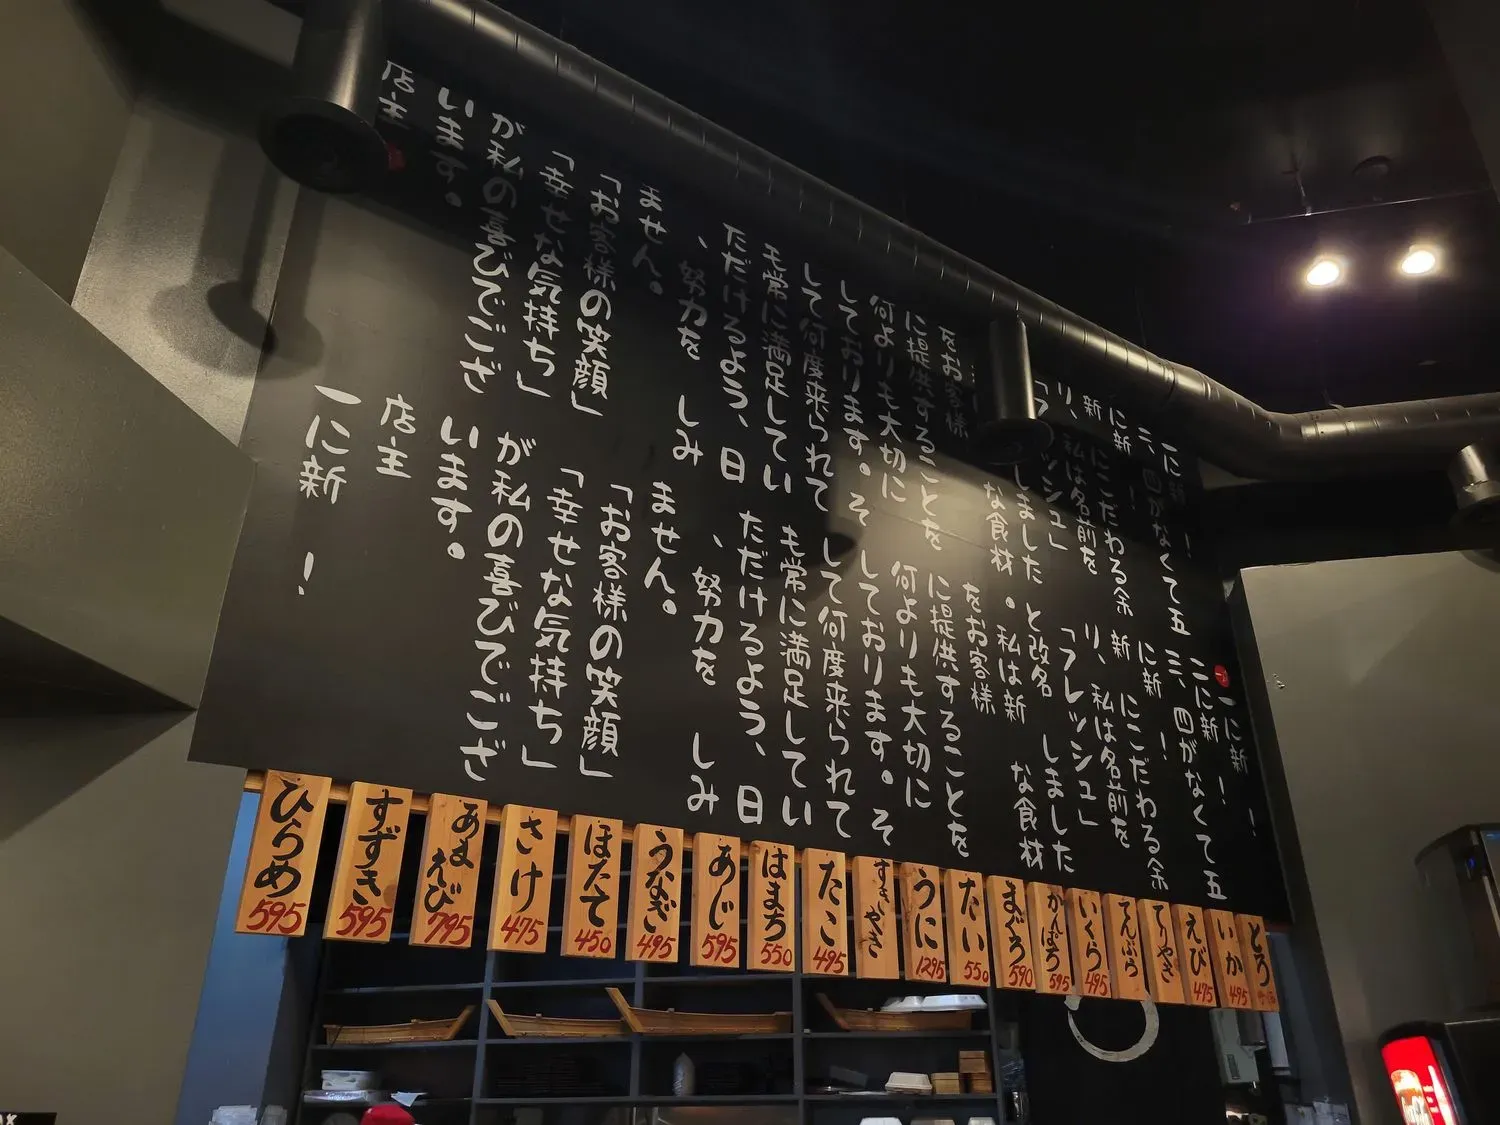 一に新！
二、四がなくて五
に新！
新 にこだわる余
り、私は名前を
「フレッシュ」
しました
な食材
をお客様
に提供することを
何よりも大切に
しております。そ
して何度来られて
も常に満足してい
ただけるよう、日
、努力を しみ
ません。
「お客様の笑顔」
「幸せな気持ち」
が私の喜びでござ
います。
店主
一に新！
二に新！
三、四がなくて五
に新！
新 にこだわる余
り、私は名前を
「フレッシュ」
と改名 しました
。私は新 な食材
をお客様
に提供することを
何よりも大切に
しております。そ
して何度来られて
も常に満足してい
ただけるよう、日
、努力を しみ
ません。
「お客様の笑顔」
「幸せな気持ち」
が私の喜びでござ
います。
店主
一に新！
とろ
いか 495
えび 475
てりやき
てんぷら
いくら 495
かんぱち 595
まぐろ 590
たい 550
うに 1295
すきやき
たこ 495
はまち 550
あじ 595
うなぎ 495
ほたて 450
さけ 475
あまえび 795
すずき 595
ひらめ 595